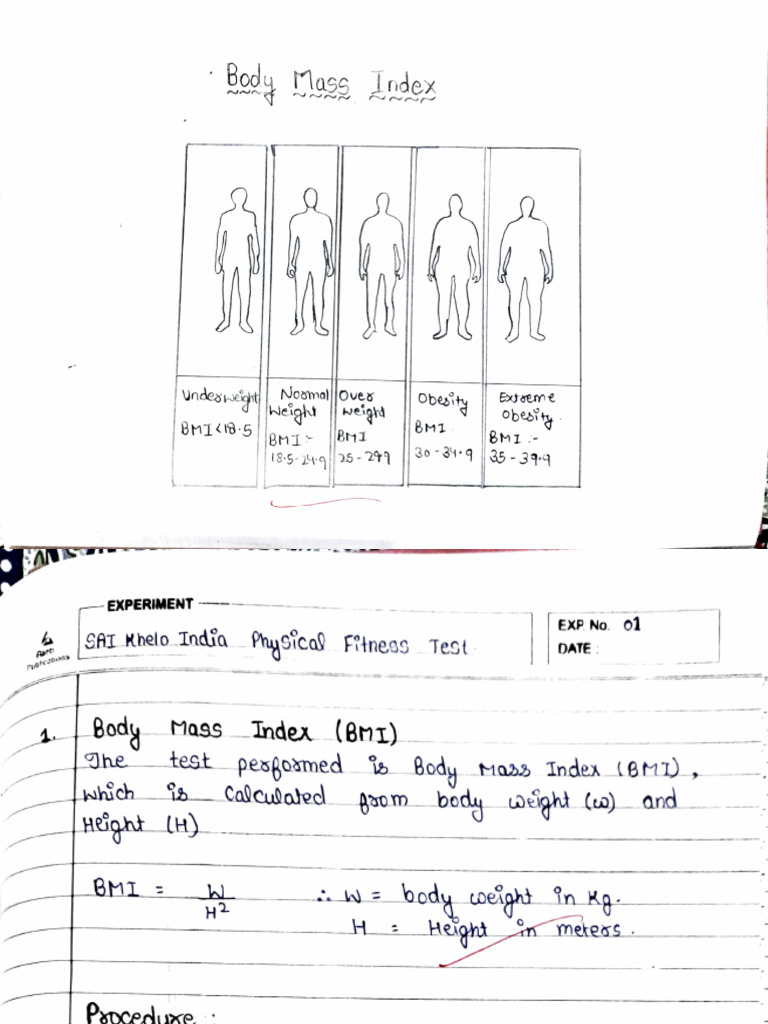 Body Mass Index
Underweight
BMI<18.5
Normal
Weight
BMI :-
18.5-24.9
Over
weight
BMI
25-299
Obesity
BMI
30-34.9
Extreme
Obesity.
BMI :-
35-39.9
EXPERIMENT
SAI Khelo India Physical Fitness Test
EXP. No. 01
DATE :
Publications
1. Body Mass Index (BMI)
The test performed is Body Mass Index (BMI),
which is calculated from body weight (w) and
Height (H)
BMI = W/H² ∴ W = body weight in Kg.
H = Height in meters.
Procedure :